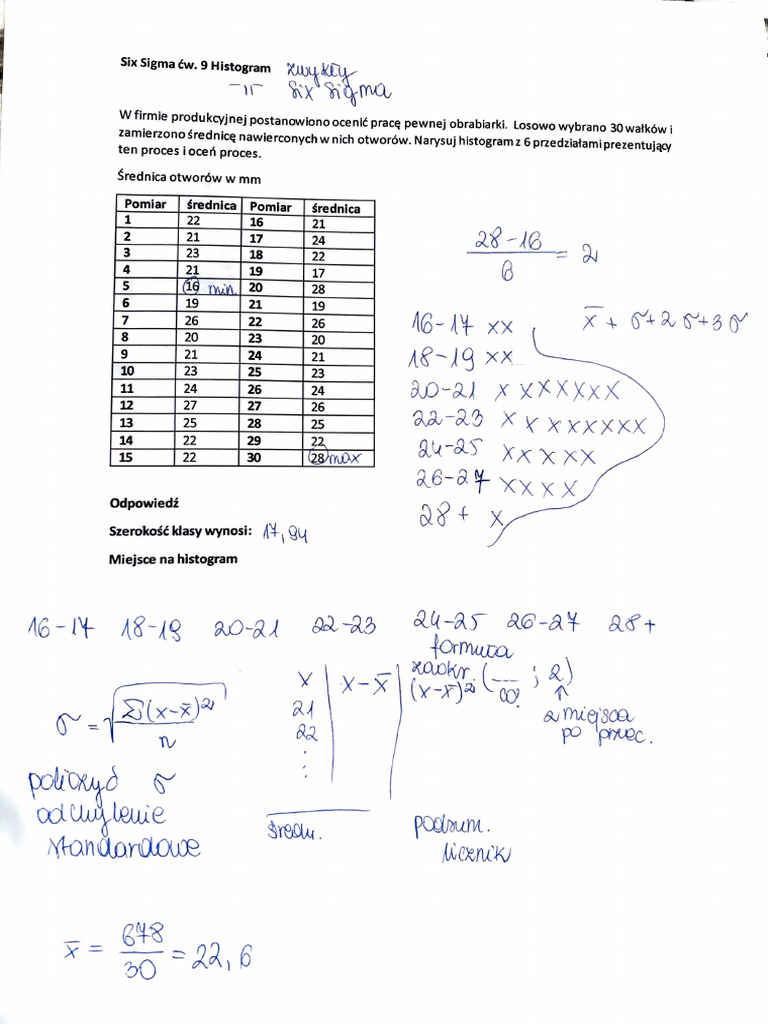 Six Sigma ćw. 9 Histogram zwykły
-11- Six Sigma
W firmie produkcyjnej postanowiono ocenić pracę pewnej obrabiarki. Losowo wybrano 30 wałków i
zamierzono średnicę nawierconych w nich otworów. Narysuj histogram z 6 przedziałami prezentujący
ten proces i oceń proces.
Średnica otworów w mm
Pomiar średnica Pomiar średnica
1 22 16 21
2 21 17 24
3 23 18 22
4 21 19 17
5 16 min. 20 28
6 19 21 19
7 26 22 26
8 20 23 20
9 21 24 21
10 23 25 23
11 24 26 24
12 27 27 26
13 25 28 25
14 22 29 22
15 22 30 28 max
28-16
6
= 2
x̄ + σ+2σ+3σ
16-17 xx
18-19 xx
20-21 x xxxxxx
22-23 x x xxxxxx
24-25 xxxxx
26-27 xxxx
28+ x
Odpowiedź
Szerokość klasy wynosi: 17,94
Miejsce na histogram
16-17 18-19 20-21 22-23 24-25 26-27 28+
formuła
zaokr. ( ; 2)
2 miejsca
po przec.
x x-x̄ (x-x̄)²
21
22
:
:
σ = √Σ(x-x̄)²
n
policzyć σ
odchylenie
standardowe
średn. podsum.
licznik
x̄ = 678
30
= 22,6